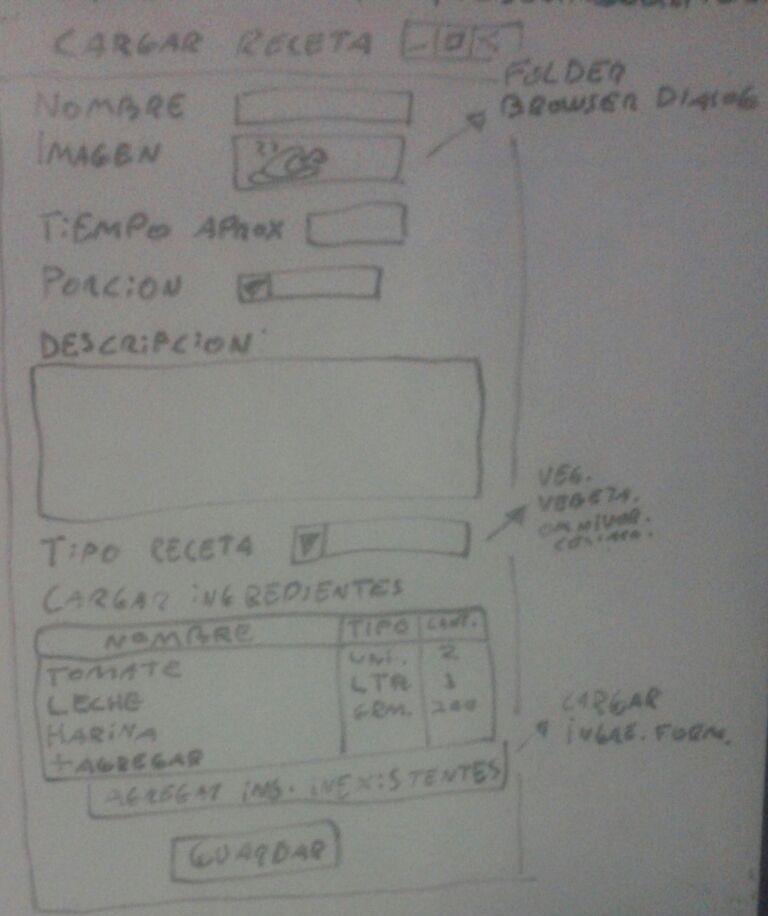 CARGAR RECETA
FOLDER
BROWSER DIALOG
NOMBRE
IMAGEN
TIEMPO APROX
PORCION
DESCRIPCION
VEG.
VEGETA.
OMNIVOR.
TIPO RECETA
CARGAR INGREDIENTES
NOMBRE TIPO CANT.
TOMATE UNI. 2
LECHE LTR 1
HARINA GRM. 200
+AGREGAR
CARGAR
INGRE. FORM.
AGREGAR ING. INEXISTENTES
GUARDAR